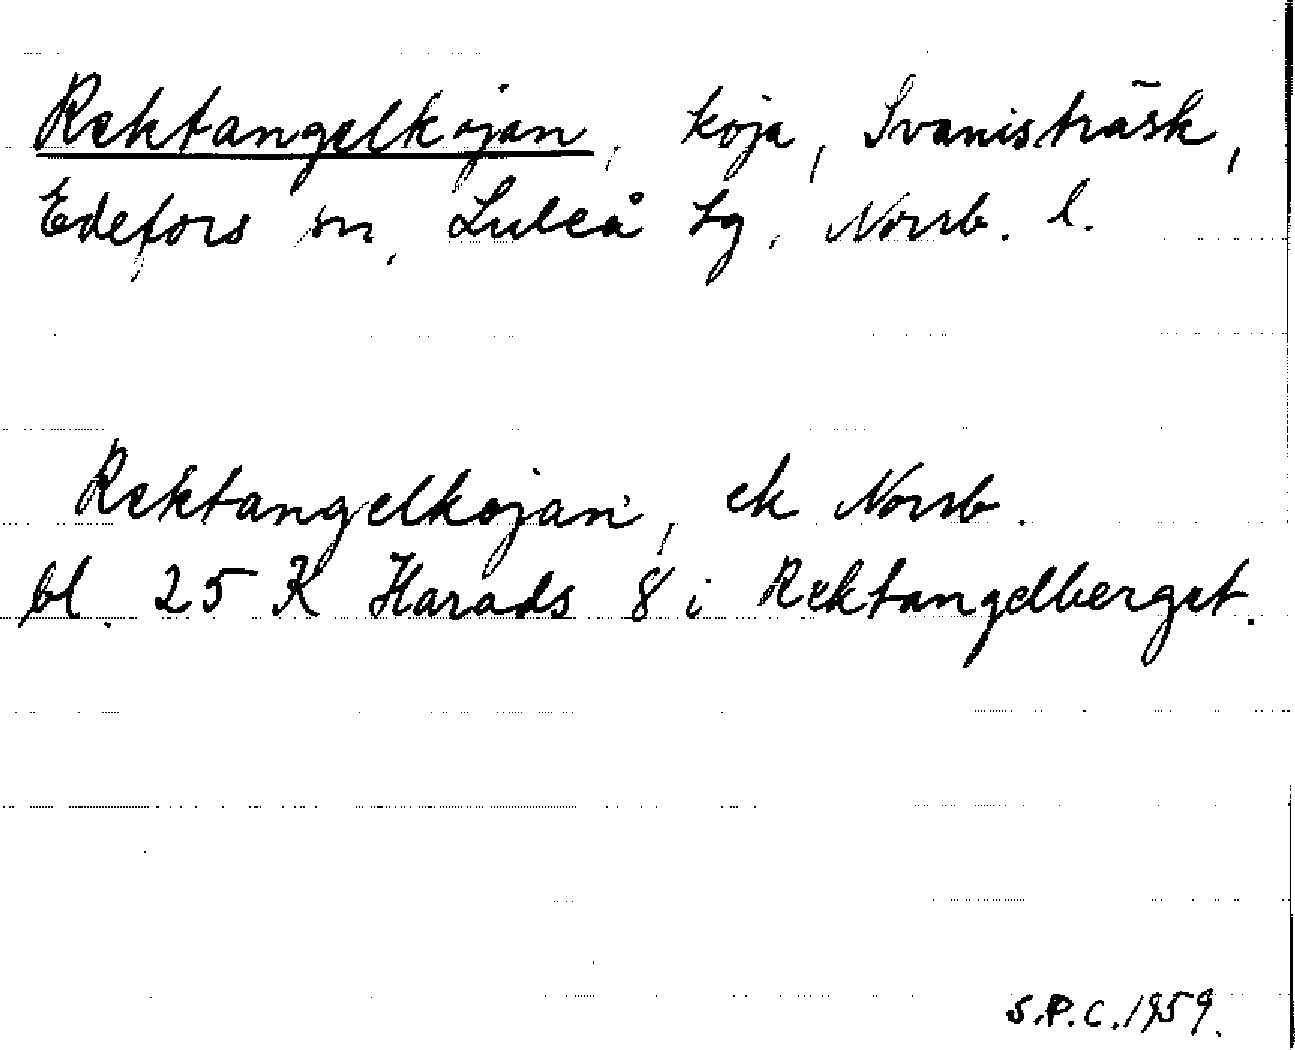 Rektangelkojan, koja, Svanisträsk,
Edefors sn, Luleå tg, Norrb. l.
Rektangelkojan, ek Norrb.
bl. 25 K Harads 8 i Rektangelberget.
S.P.C. 1959.